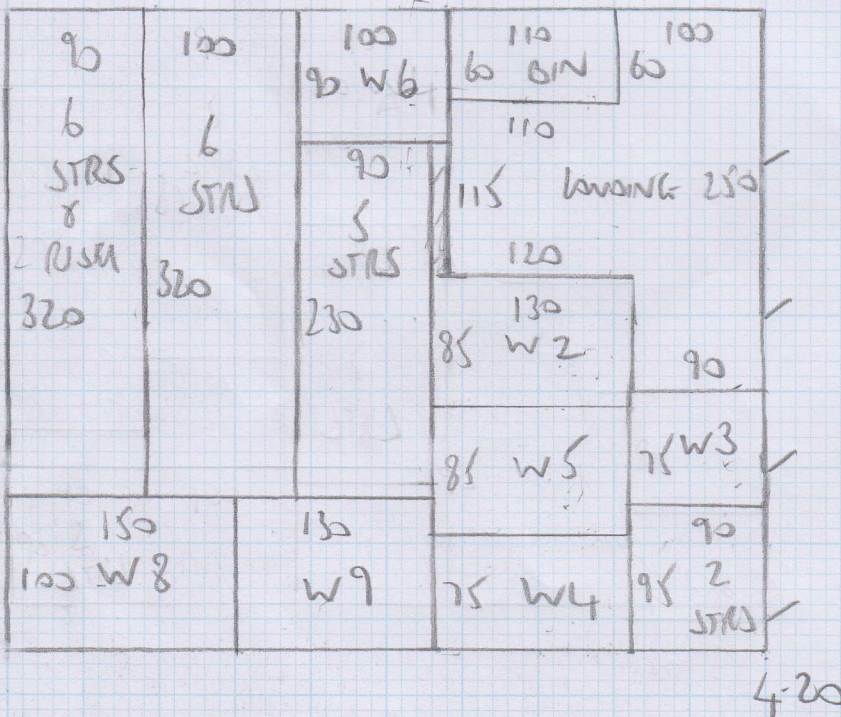 90
6
STRS
&
RISER
320
100
6
STRS
320
100
90 W6
90
5
STRS
230
110
60 BIN
100
60
110
115 LANDING 250
120
130
85 W2
90
85 W5
75 W3
150
100 W8
130
W9
75 W4
90
95 2
STRS
4-20